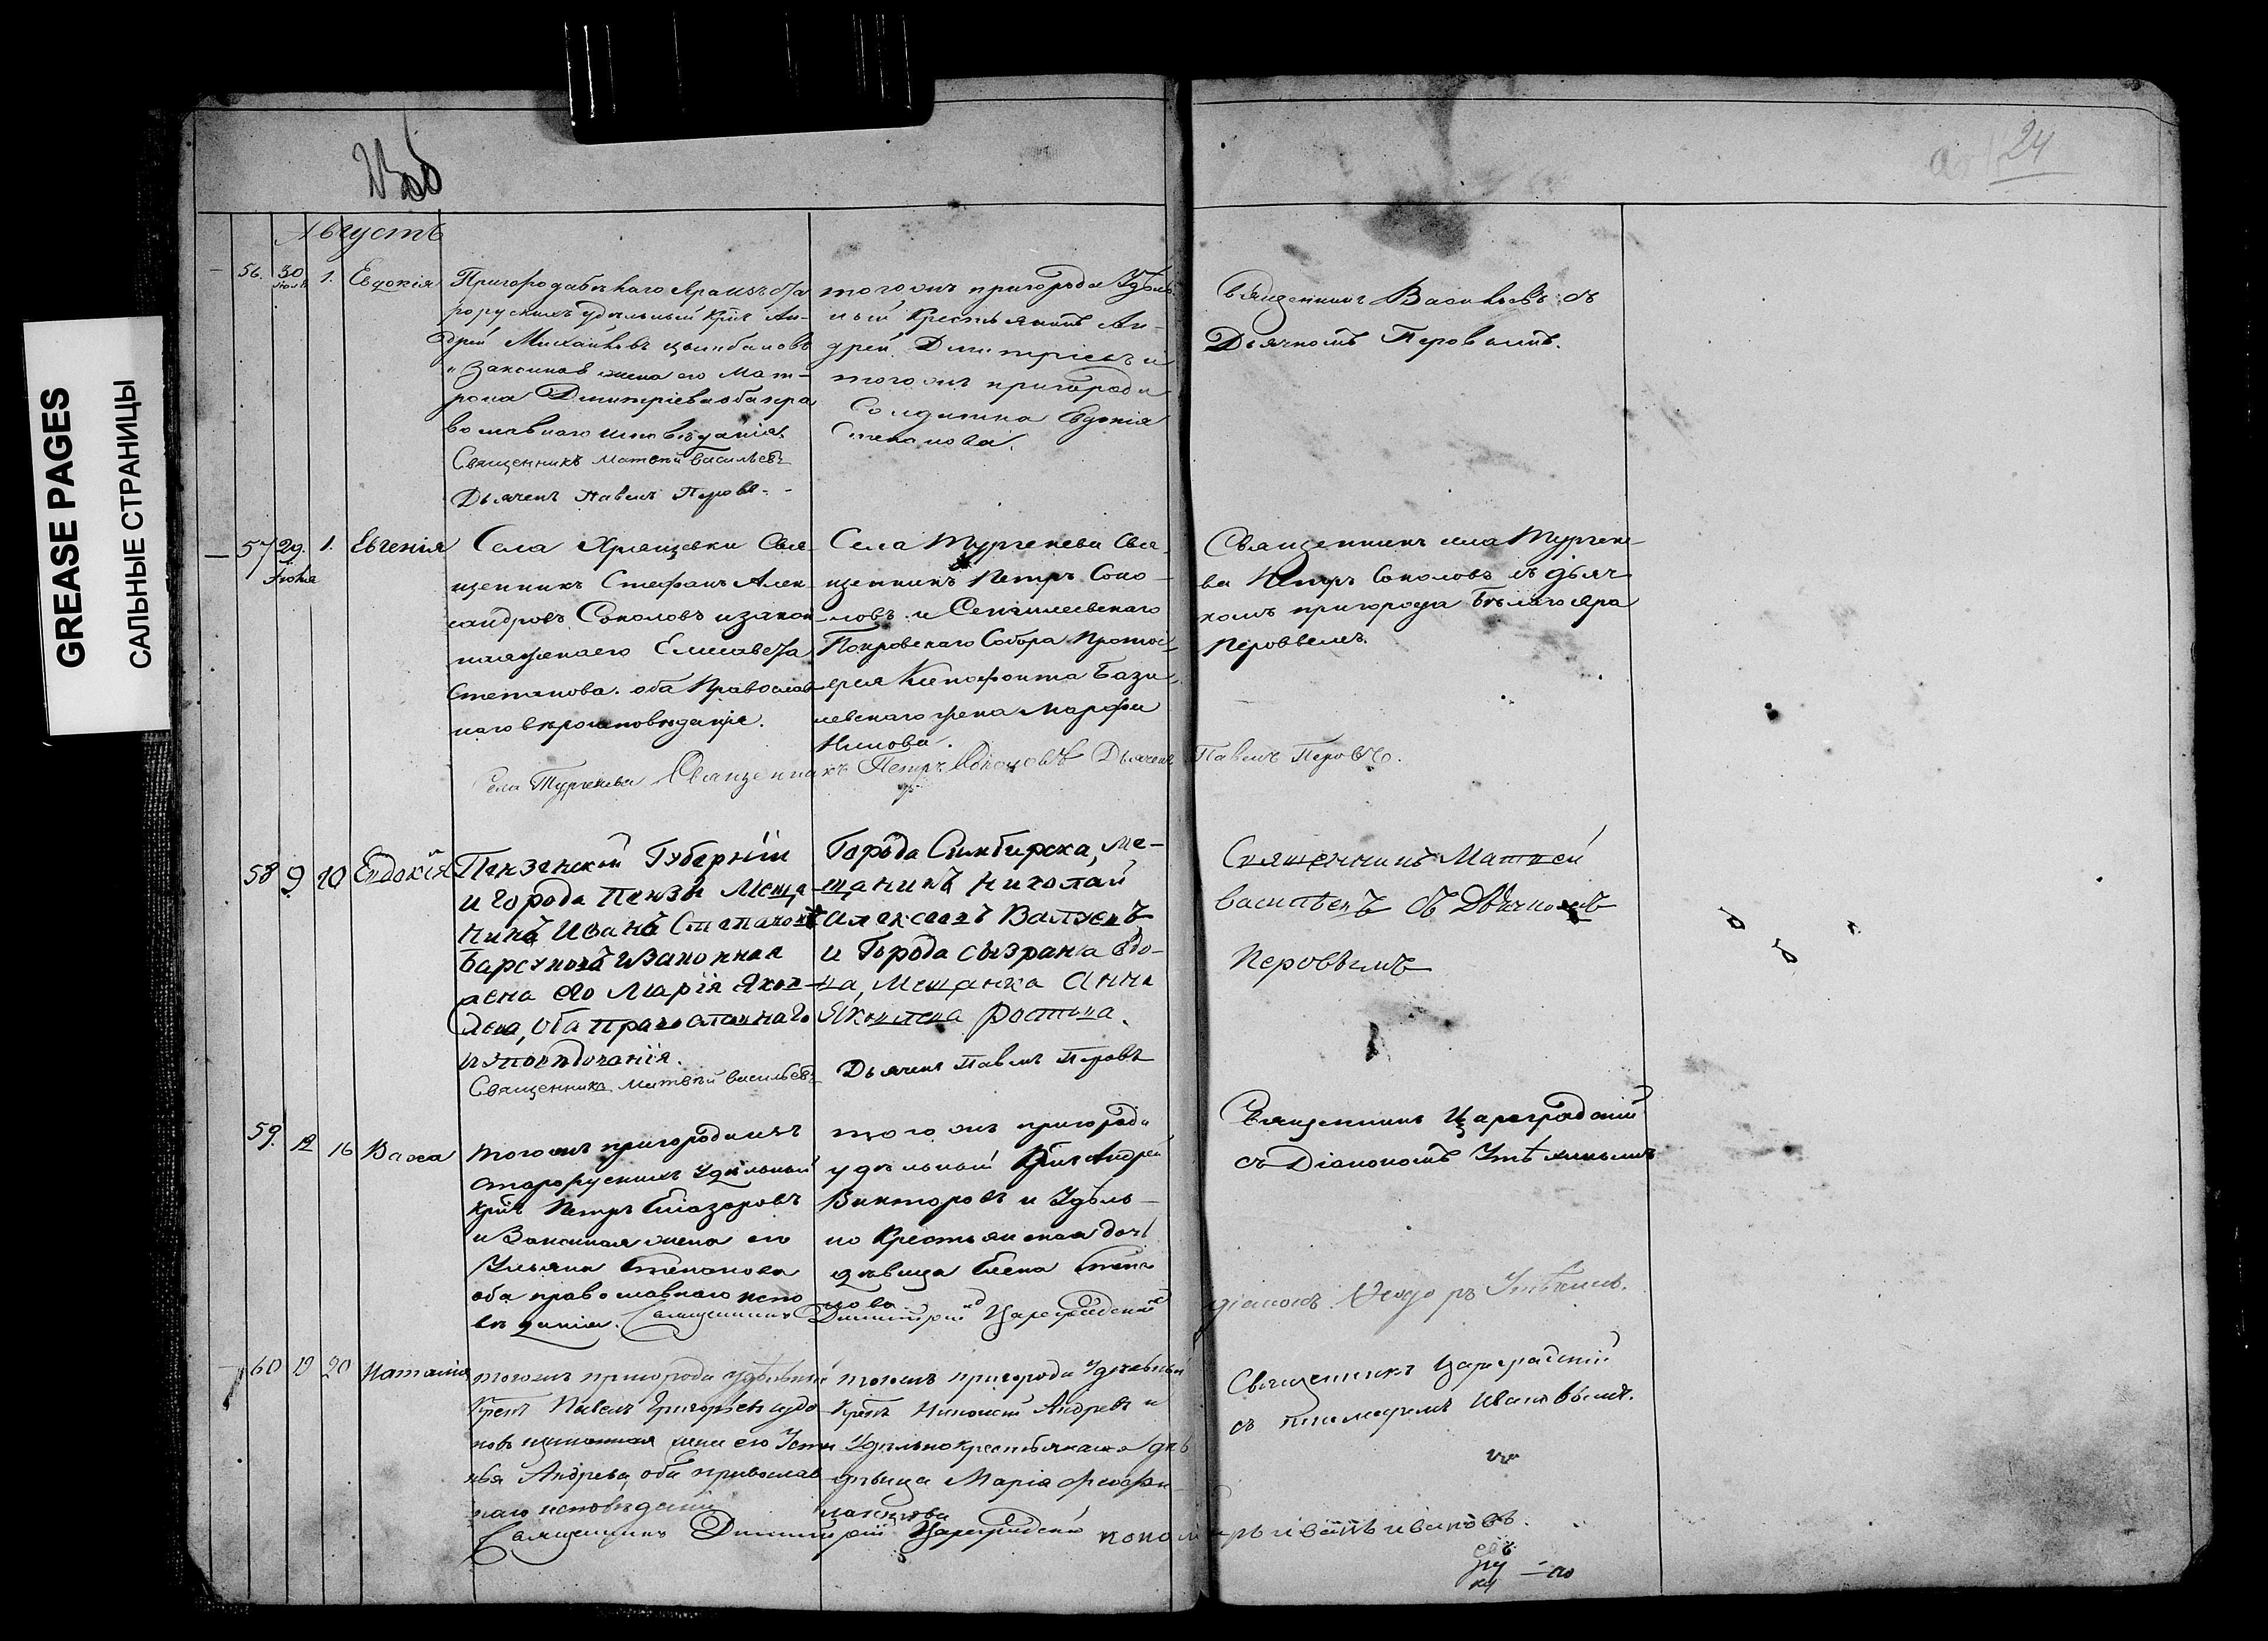 GREASE PAGES
САЛЬНЫЕ СТРАНИЦЫ
24
Августъ
56. 30 Июля 1. Евдокія
Пригорода бѣлаго Яра изъ ста
рорускихъ удѣльный Крнъ Ан-
дрей Михайловъ
и законная жена его Мат-
рона Дмитріева оба пра
вославнаго исповѣданія.
Священникъ Матвей Васильевъ
Дьячекъ Павелъ Перовъ.
того жъ пригорода Удѣль-
ный Крестьянинъ Ан-
дрей Дмитріевъ и
того жъ пригорода
Солдатка Евдокія
Степанова.
Священникъ Васильевъ съ
Дьячкомъ Перовымъ.
57 29. Июля 1. Евгенія
Села Хрящевки Свя-
щенникъ Стефанъ Алек
сандровъ Соколовъ и закон
ная жена его Елисавета
Степанова. оба Православ
наго вѣроисповѣданія.
Села Тургенева Свя-
щенникъ Петръ Соко-
ловъ и Сенгилеевскаго
Покровскаго Собора Протоі-
ерея Ксенофонта Бази-
левскаго жена Марфа
Священникъ села Турген-
ва Петръ Соколовъ съ дьяч
комъ пригорода Бѣлаго яра
Перовымъ.
Села Тургенева Священникъ Петръ Соколовъ Дьячекъ Павелъ Перовъ.
58 9 10 Евдокія
Пензенской Губерніи
и города Пензы Меща-
нинъ Иванъ Степановъ
Барсуковъ и Законная
жена его Марія Яков-
лева, оба православнаго
исповѣдованія.
Священникъ Матвѣй Васильевъ
Города Симбирска, ме-
щанинъ Николай
Алексеевъ Валуевъ
и Города Сызрана вдо-
ва, Мещанка Анна
Яковлева Ростова.
Дьячекъ Павелъ Перовъ
Священникъ Матвей
Васильевъ съ Дьячкомъ
Перовымъ
59. 12 16 Васса
того жъ пригорода изъ
старорускихъ удѣльный
Крнъ Петръ Елазаровъ
и Законная жена его
Ульяна Степанова
оба православнаго испо
вѣданія. Священникъ Димитрій Цареградскій
того жъ пригорода
удѣльный Крнъ Андрей
Викторовъ и Удѣль-
но Крестьянская дочь
дѣвица Елена Степа
нова
Священникъ Цареградскій
съ Діакономъ Утѣхинымъ
діаконъ Ѳеодоръ Утѣхинъ.
60 19 20 Наталія
того жъ пригорода удѣльный
Крест Павелъ Григорьевъ
законная жена его Усти
нья Андрева, оба православ
наго исповѣданія
того жъ пригорода Удѣльный
Крест Николай Андревъ и
Удѣльно крестьянская
дѣвица Марія Феофи
лактова
Священникъ Цареградскій
съ пономаремъ Ивановымъ.
Священникъ Димитрій Цареградскій пономарь иванъ ивановъ.